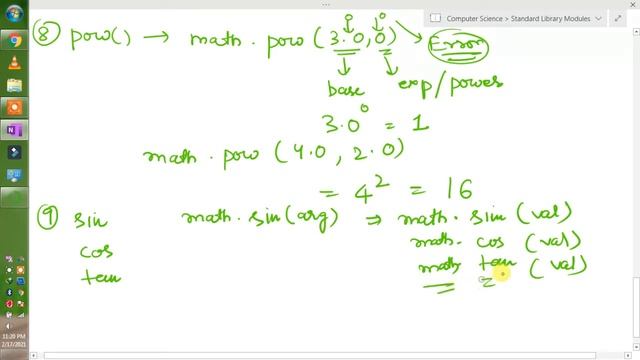 Computer Science > Standard Library Modules
0 0
⑧ pow() → math.pow(3.0,0) Error
base exp/power
3.0⁰ = 1
math.pow(4.0, 2.0)
= 4² = 16
⑨ sin math.sin(arg) ⇒ math.sin(val)
cos math.cos(val)
tan math tan (val)
11:20 PM
2/17/2021